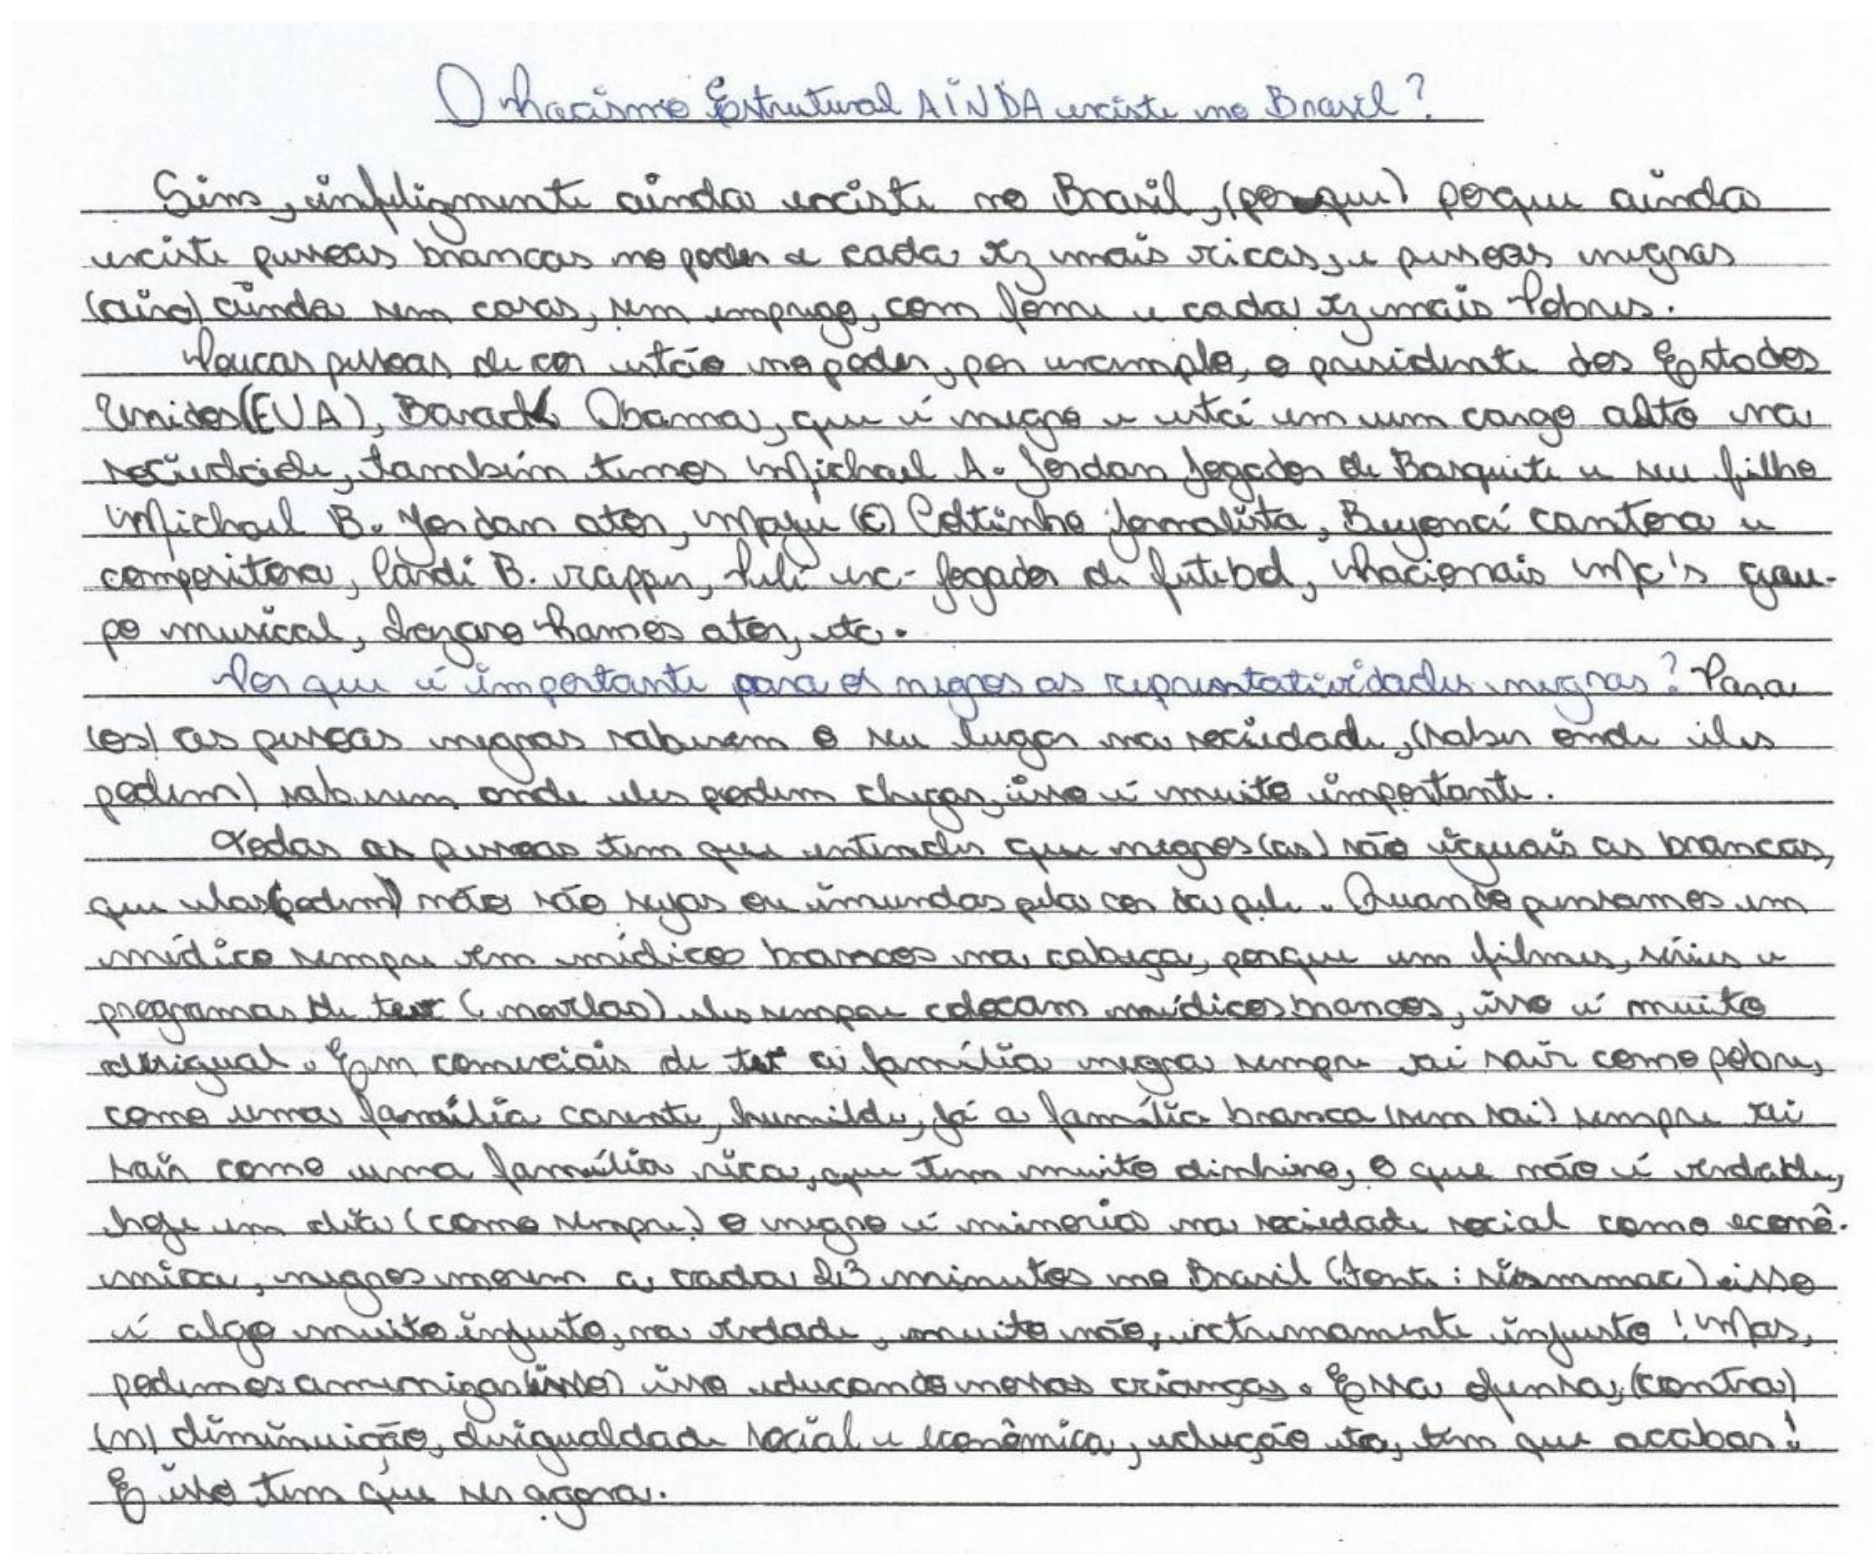 O Racismo Estrutural AINDA existe no Brasil?
Sim, infelizmente ainda existe no Brasil, (porque) porque ainda
existe pessoas brancas no poder e cada vez mais ricas, e pessoas negras
(aina) ainda sem casas, sem emprego, com fome e cada vez mais Pobres.
Poucas pessoas de cor estão no poder, por exemplo, o presidente dos Estados
Unidos (EUA), Barack Obama, que é negro e está em um cargo alto na
sociedade, também temos Michael A. Jordan Jogador de Basquete e seu filho
Michael B. Jordan ator, Maju (C) Coltinho Jornalista, Beyoncé cantora e
compositora, Cardi B. rapper, Pelé ex-Jogador de futebol, Racionais Mc's gru-
po musical, Lázaro Ramos ator, etc.
Por que é importante para os negros as representatividades negras? Para
(os) as pessoas negras saberem o seu lugar na sociedade, (saber onde eles
podem) saberem onde eles podem chegar, isso é muito importante.
Todas as pessoas tem que entender que negros(as) são iguais as brancas,
que elas (podem) não são sujas ou imundas pela cor da pele. Quando pensamos em
médico sempre vem médicos brancos na cabeça, porque em filmes, séries e
programas de tev (novelas) eles sempre colocam médicos brancos, isso é muito
desigual. Em comerciais de tev a família negra sempre vai sair como pobre,
como uma família carente, humilde, já a família branca (sem sai) sempre vai
sair como uma família rica, que tem muito dinhiro, o que não é verdade,
hoje em dia (como sempre) o negro é minoria na sociedade social como econô-
mica, negros morem a cada 23 minutos no Brasil (fonte: sismmac) isso
é algo muito injusto, na verdade, muito não, extremamente injusto! Mas,
podemos amenizar (isso) isso educando nossas crianças. Essa ofensa, (contra)
(n) diminuição, desigualdade social e econômica, edução etc, tem que acabar!
E isso tem que ser agora.